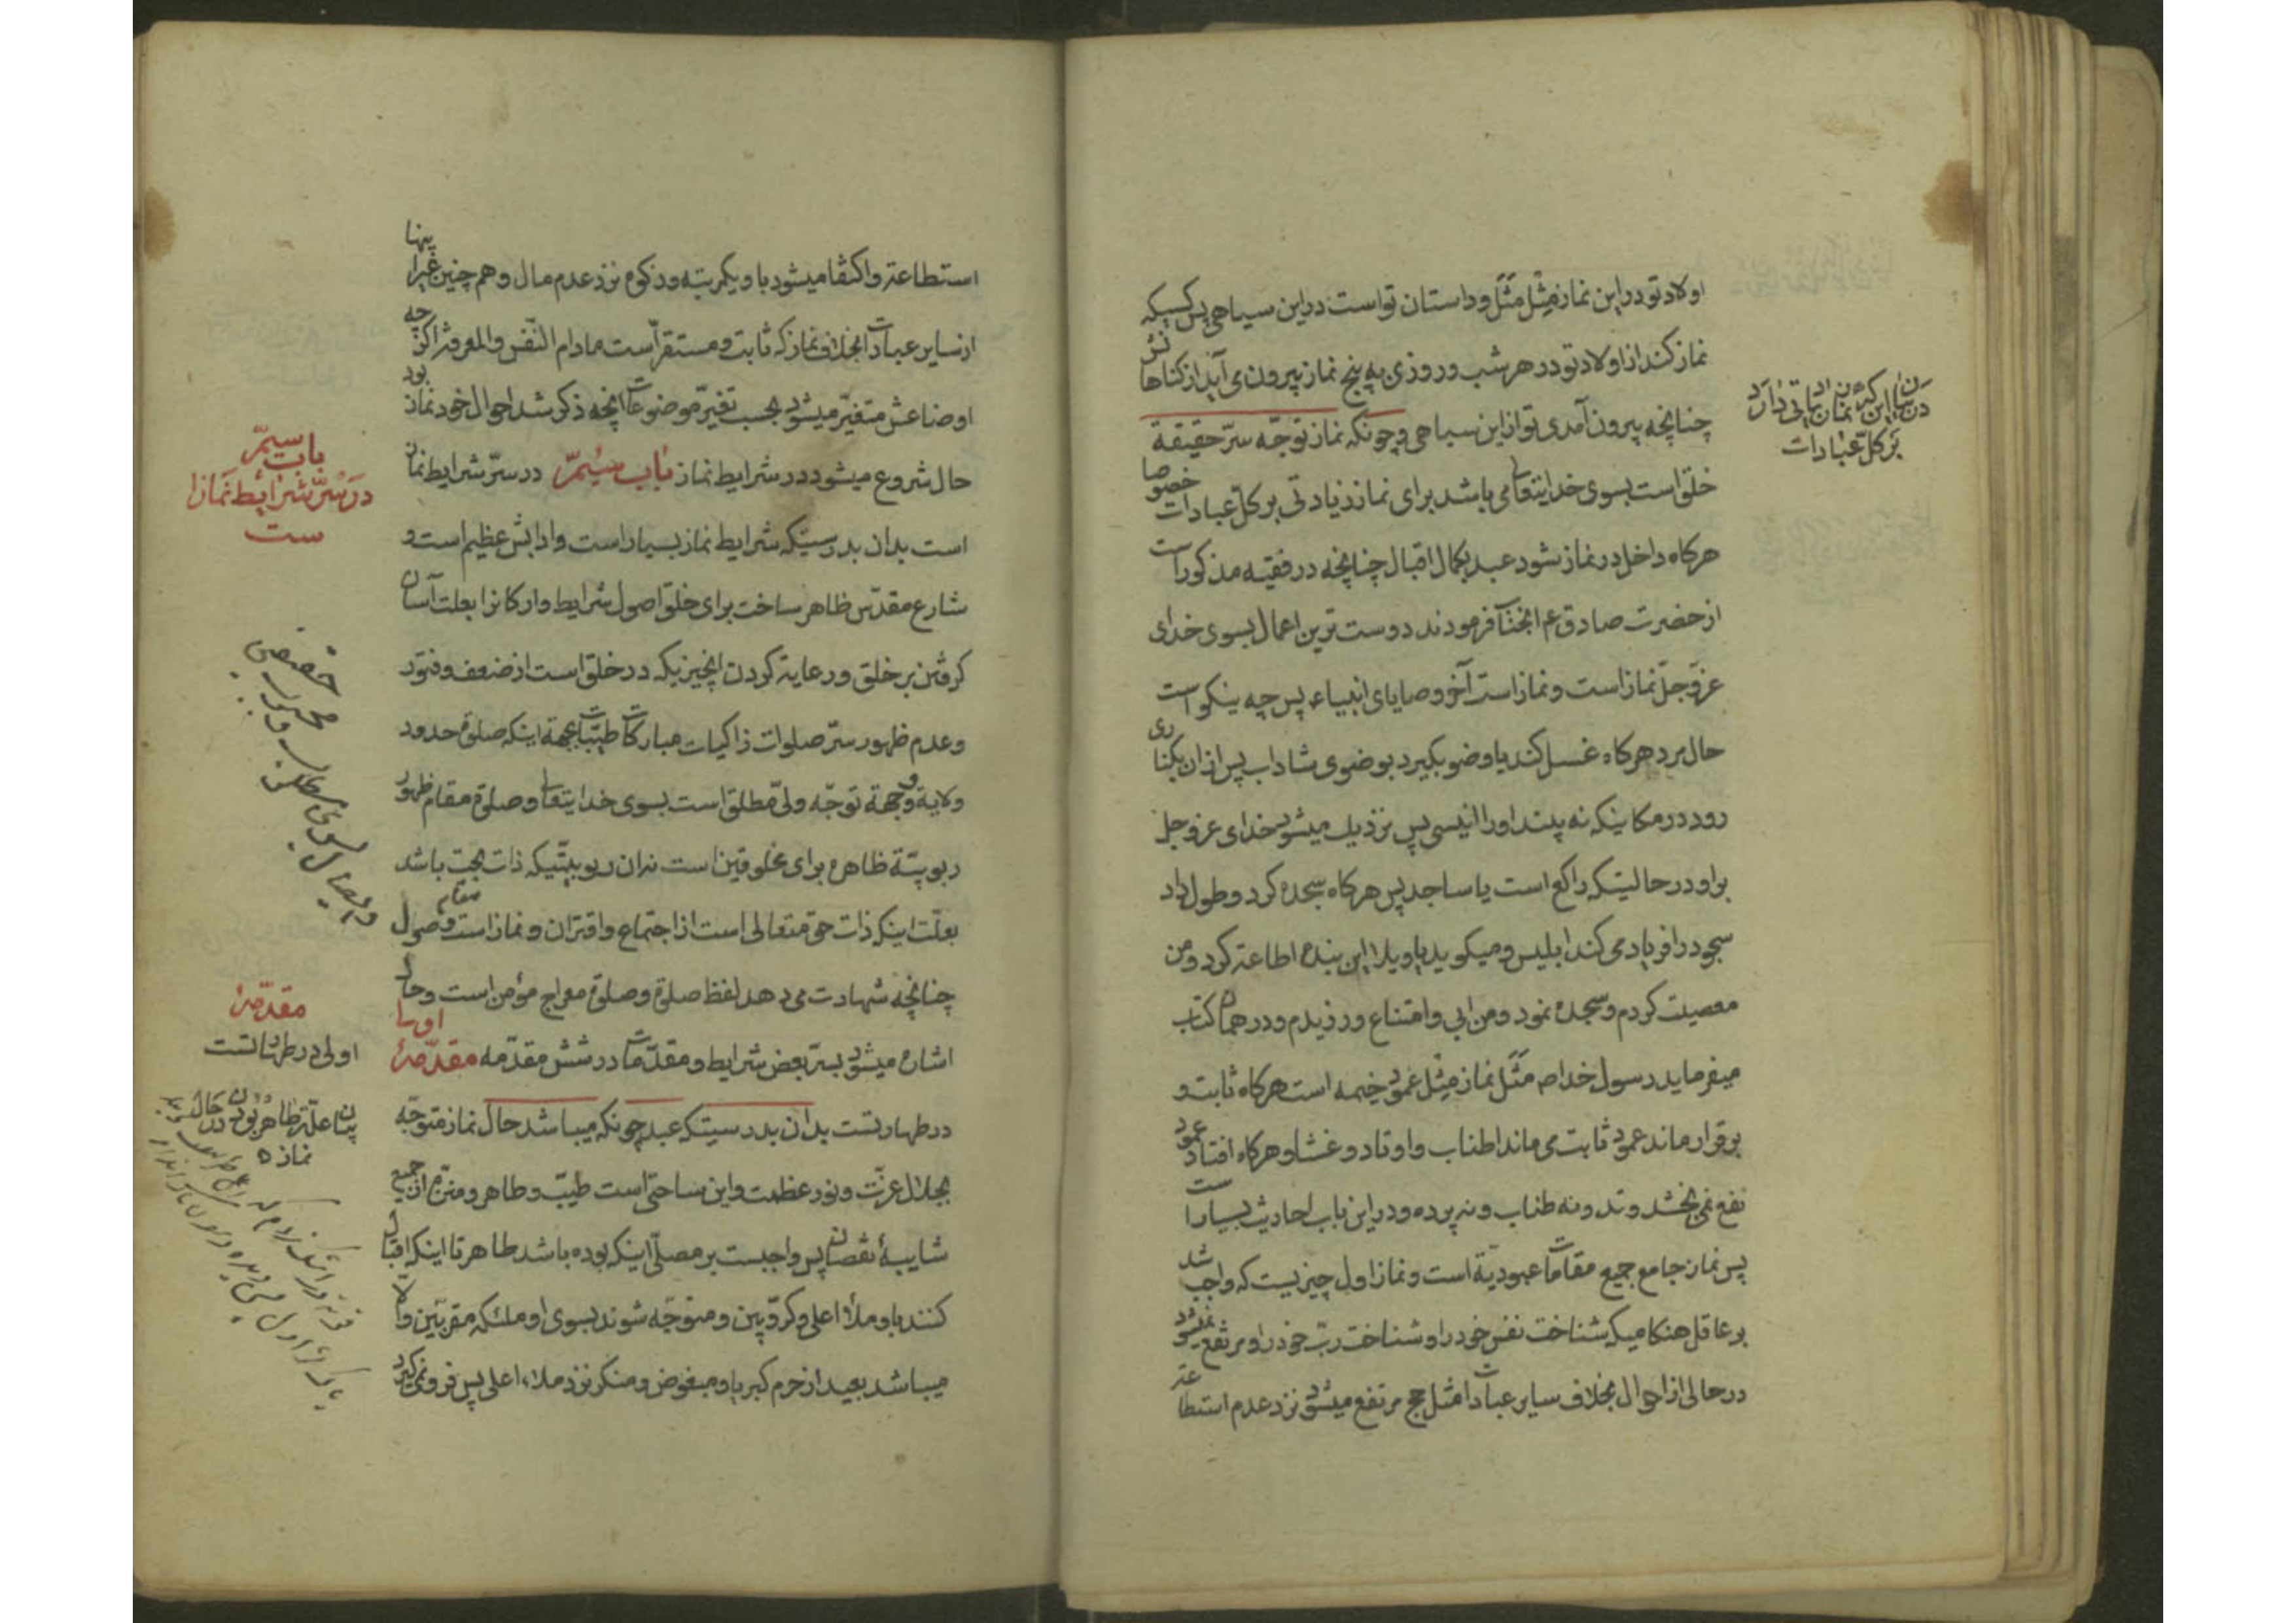 اولاد تو در این نماز مِثْل مَثَل و داستان تو است در این سیاهی پس کسیکه
نماز کند از اولاد تو در هر شب و روزی به پنج نماز بیرون می آید از کناهانش
چنانچه بیرون آمدی تو از این سیاهی و چونکه نماز توجّه سرّ حقیقة
خلق است بسوی خدایتعالی می باشد برای نماز زیادتی بر کلّ عبادات خصوصا
هرکاه داخل در نماز شود عبد بکمال اقبال چنانچه در فقیه مذکور است
از حضرت صادق ع م انجناب فرمودند دوست ترین اعمال بسوی خدای
عزّوجلّ نماز است و نماز است آخر وصایای انبیاء پس چه نیکو است
حال مرد هرکاه غسل کند یا وضو بکیرد بوضوی شاداب پس از ان بکناری
رود در مکانیکه نه بیند اورا انیسی پس نزدیک میشود خدای عزوجل
براو در حالیتکه راکع است یا ساجد پس هرکاه سجده کرد و طول داد
سجود را فریاد می کند ابلیس و میکوید یا ویلا این بنده اطاعة کرد و من
معصیت کردم و سجده نمود و من ابی و امتناع ورزیدم و در همان کتاب
میفرماید رسول خدا ص مَثَل نماز مِثْل عمود خیمه است هرکاه ثابت و
برقرار ماند عمود ثابت می ماند اطناب و اوتاد و غشا و هرکاه افتاد عمود
نفع نمی بخشد وتد و نه طناب و نه پرده و در این باب احادیث بسیار است
پس نماز جامع جمیع مقامات عبودیّة است و نماز اول چیزیست که واجب شد
بر عاقل هنکامیکه شناخت نفس خود را و شناخت ربّ خود را و مرتفع نمیشود
در حالی از احوال بخلاف سایر عبادات مثل حج مرتفع میشود نزد عدم استطاعة
در بیان اینکه نماز زیادتی دارد
بر کلّ عبادات
استطاعة و اکتفا میشود باو یکمرتبه و زکوة نزد عدم مال و هم چنین غیر اینها
از سایر عبادات بخلاف نماز که ثابت و مستقرّ است مادام النّفس و المعرفة اکرچه
اوضاعش متغیّر میشود بحسب تغیّر موضوعات انچه ذکر شد احوال خود نماز بود
حال شروع میشود در شرایط نماز باب سیّم در سرّ شرایط نماز
است بدان بدرستیکه شرایط نماز بسیار است و ادابش عظیم است و
شارع مقدّس ظاهر ساخت برای خلق اصول شرایط و ارکانرا بعلت آسان
کرفتن بر خلق و رعایة کردن انچیزیکه در خلق است از ضعف و فتور
و عدم ظهور سرّ صلوات زاکیات مبارکات طیّبات بجهة اینکه صلوة حدود
ولایة و جهة توجّه ولیّ مطلق است بسوی خدایتعالی و صلوة مقام ظهور
ربوبیّة ظاهره برای مخلوقین است نه ان ربوبیّتیکه ذات بحت باشد
بعلّت اینکه ذات حق متعالی است از اجتماع و اقتران و نماز است مقام وصول
چنانچه شهادت می دهد لفظ صلوة و صلوة معراج مؤمن است و حال
اشاره میشود بسرّ بعض شرایط و مقدّمات در شش مقدّمه مقدّمهٔ اولی
در طهارتست بدان بدرستیکه عبد چونکه میباشد حال نماز متوجّه
بجلال عزّت و نور عظمت و این ساحتی است طیّب و طاهر و منزّه از جمیع
شایبهٔ نقصان پس واجبست بر مصلّی اینکه بوده باشد طاهر تا اینکه اقبال
کنند باو ملأ اعلی و کرّوبیین و متوجّه شوند بسوی او ملئکه مقربّین و الّا
میباشد بعید از حرم کبریا و مبغوض و منکر نزد ملاء اعلی پس فرو نمی کیرد
باب سیّم
در سرّ شرایط نماز
ست
مقدّمهٔ
اولی در طهارتست
بیان علّة طاهر بودن در حال
نماز ه